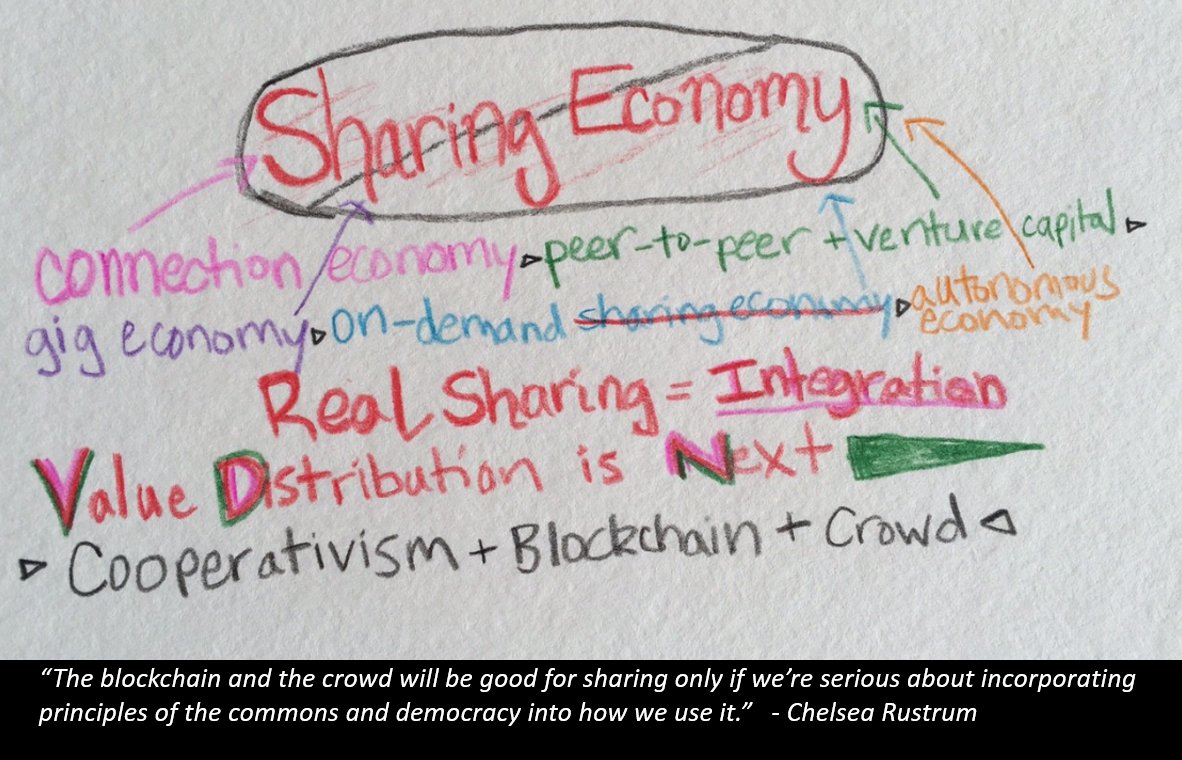 Sharing Economy
connection economy ▹ peer-to-peer + venture capital ▹
gig economy ▹ on-demand sharing economy ▹ autonomous economy
Real Sharing = Integration
Value Distribution is Next
▹ Cooperativism + Blockchain + Crowd ◃
“The blockchain and the crowd will be good for sharing only if we’re serious about incorporating
principles of the commons and democracy into how we use it.” - Chelsea Rustrum